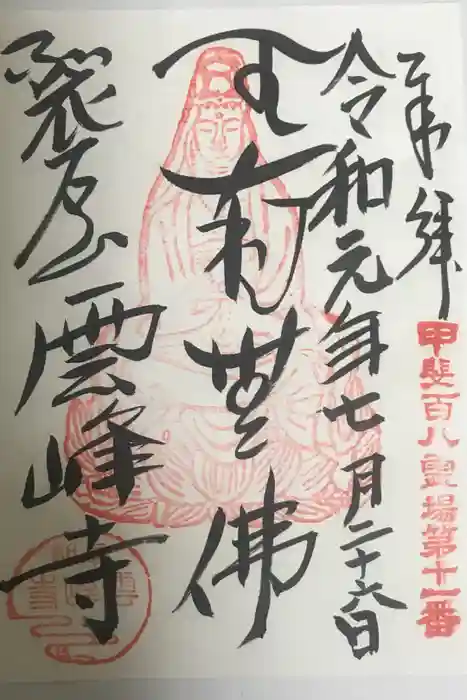 奉拝
甲斐百八霊場第十一番
令和元年七月二十六日
南無佛
裂石雲峰寺